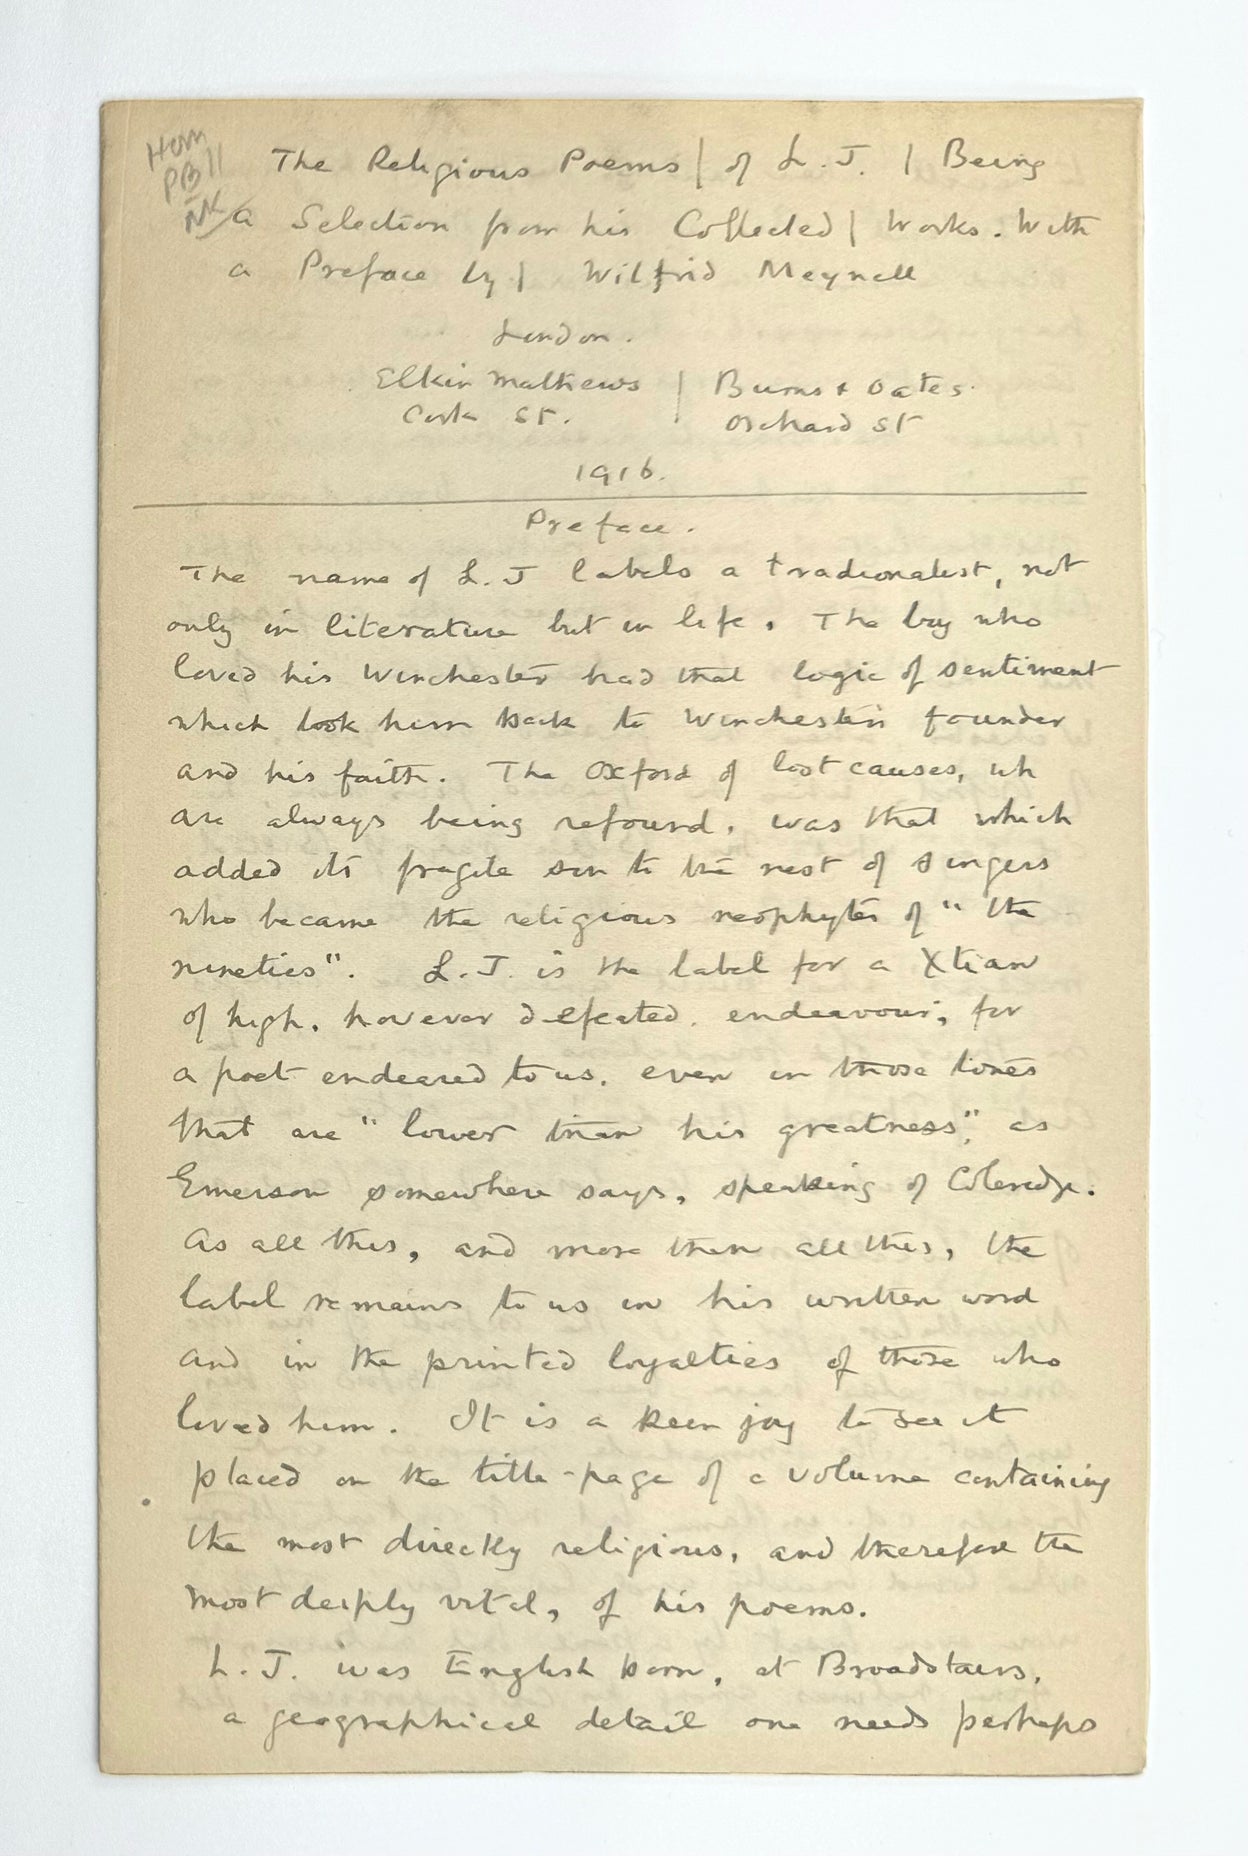 Horn
PB 11
NK
The Religious Poems | of L. J. | Being
a Selection from his Collected | Works. With
a Preface by | Wilfrid Meynell
London.
Elkin Mathews | Burns & Oates.
Cork St. | Orchard St
1916.
Preface.
The name of L. J labels a tradionalist, not
only in literature but in life. The boy who
loved his Winchester had that logic of sentiment
which took him back to Winchester's founder
and his faith. The Oxford of lost causes, wh
are always being refound, was that which
added its fragile son to the nest of singers
who became the religious neophytes of "the
nineties". L. J. is the label for a Xtian
of high, however defeated, endeavour; for
a poet endeared to us, even in those lines
that are "lower than his greatness", as
Emerson somewhere says, speaking of Coleridge.
As all this, and more than all this, the
label remains to us in his written word
and in the printed loyalties of those who
loved him. It is a keen joy to see it
placed on the title-page of a volume containing
the most directly religious, and therefore the
most deeply vital, of his poems.
L. J. was English born, at Broadstairs,
a geographical detail one needs perhaps